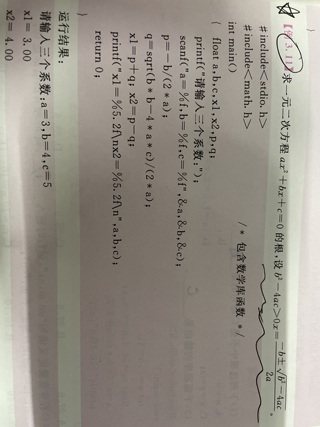 【例3.11】求一元二次方程 ax²+bx+c=0 的根,设 b²-4ac>0。x=(-b±√(b²-4ac))/2a。
#include<stdio.h>
#include<math.h> /* 包含数学库函数 */
int main()
{ float a,b,c,x1,x2,p,q;
printf("请输入三个系数:");
scanf("a=%f,b=%f,c=%f",&a,&b,&c);
p=-b/(2*a);
q=sqrt(b*b-4*a*c)/(2*a);
x1=p+q; x2=p-q;
printf("x1=%5.2f\nx2=%5.2f\n",a,b,c);
return 0;
}
运行结果:
请输入三个系数:a=3,b=4,c=5
x1= 3.00
x2= 4.00